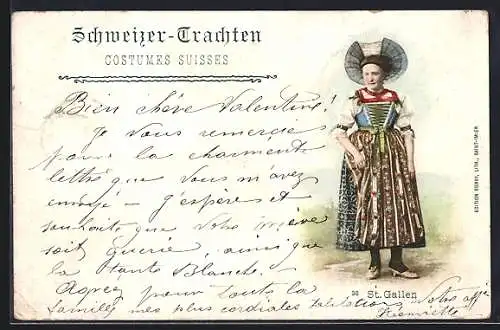 Schweizer-Trachten
COSTUMES SUISSES
Bien chère Valentine!
Je vous remercie
pour la charmante
lettre que vous m'avez
envoyé - j'espère et
souhaite que votre mère
soit guérie, ainsi que
la tante Blanche.
Agréez pour toute la
famille mes plus cordiales salutations Votre aff.
Henriette
36 St. Gallen